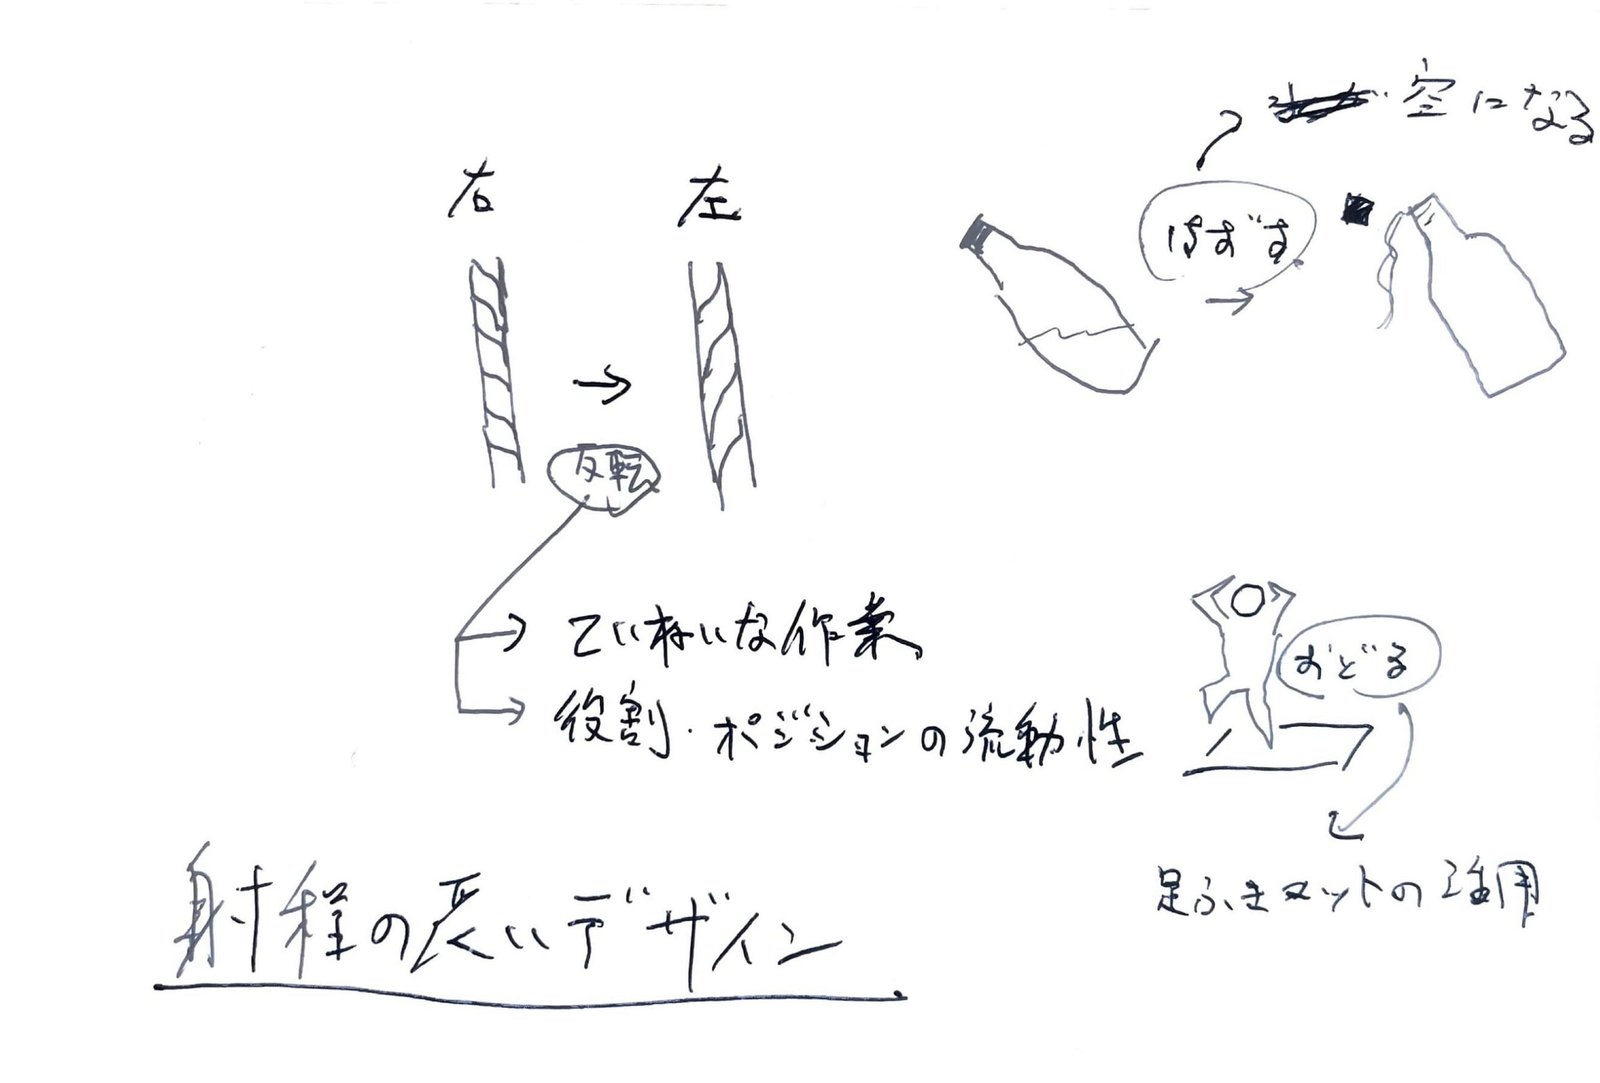 空になる
右
左
はずす
反転
ていねいな作業
役割・ポジションの流動性
おどる
足ふきマットの
射程の長いデザイン